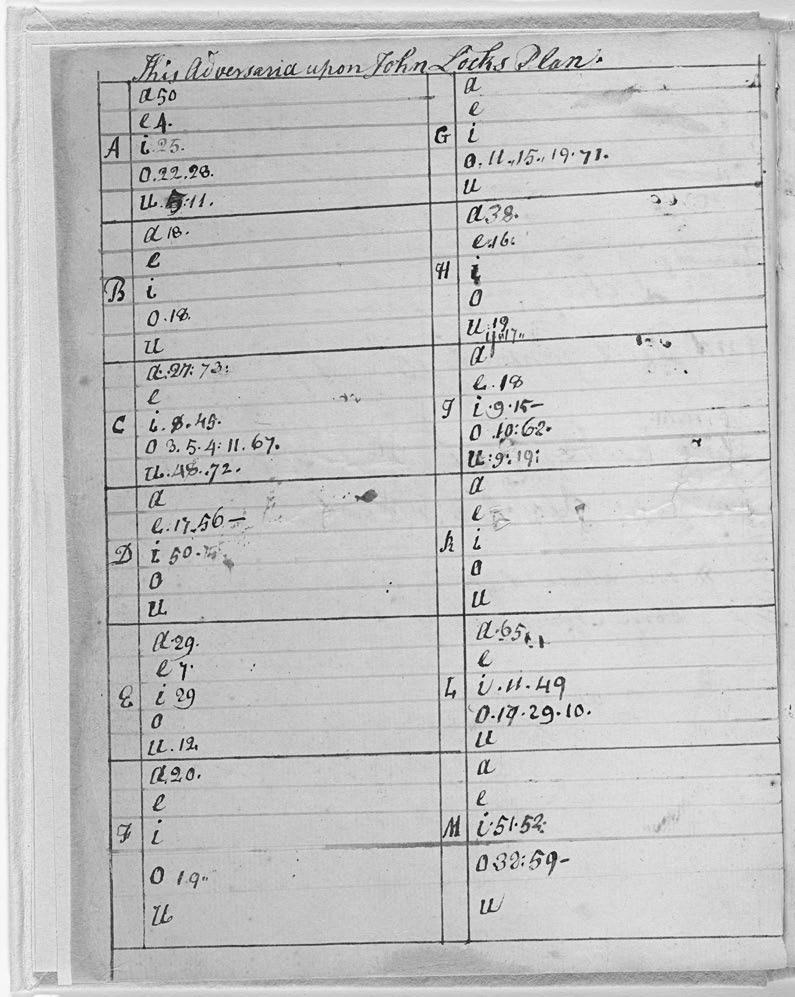 This Adversaria upon John Locks Plan.
A
a 50
e 4.
i. 25.
o. 22. 28.
u. 11.
B
a 18.
e
i
o. 18.
u
C
a. 27: 73:
e
i. 8. 45.
o 3. 5. 4: 11. 67.
u. 48. 72.
D
a
e. 17. 56 –
i 50.
o
u
E
a. 29.
e 7.
i 29
o
u. 12.
F
a. 20.
e
i
o 19"
u
G
a
e
i
o. 11., 15., 19. 71.
u
H
a 38.
e. 16.
i
o
u. 19
y. 17"
I
a
e. 18
i. 9. 15 –
o. 10: 62.
u: 9: 19:
K
a
e
i
o
u
L
a. 65
e
i. 11. 49
o. 19. 29. 10.
u
M
a
e
i. 51. 52:
o 32: 59 –
u